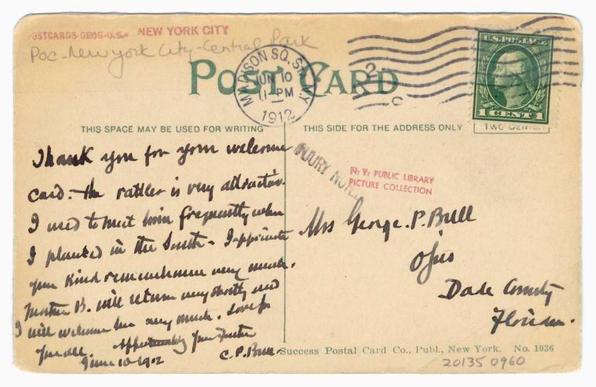 POSTCARDS-GEOG-U.S.- NEW YORK CITY
Poc-New York City-Central Park
MADISON SQ. STA. NY
JUN 10
PM
1912
U.S. POSTAGE
1 CENT 1
POST CARD
THIS SPACE MAY BE USED FOR WRITING
THIS SIDE FOR THE ADDRESS ONLY
Thank you for your welcome
card. the rattler is very attractive.
I used to meet him frequently when
I planted in the South - I appreciate
your kind remembrance very much.
Mother B. will return very shortly and
I will welcome her very much. Love to
you all. Affectionately Your
June 10-1912
C.P. Bull.
N. Y. PUBLIC LIBRARY
PICTURE COLLECTION
Mrs George. P. Bull
Ojus
Dade County
Florida.
Success Postal Card Co., Publ., New York. No. 1036
20135 0960